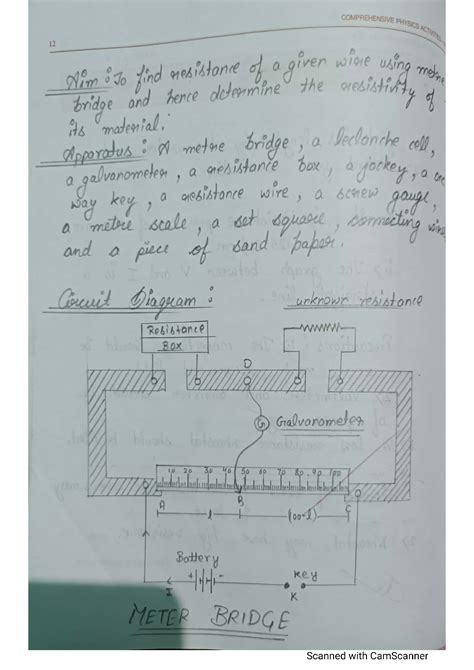 COMPREHENSIVE PHYSICS ACTIVITIES
12
Aim : To find resistance of a given wire using metre
bridge and hence determine the resistivity of
its material.
Apparatus : A metre bridge, a Leclanche cell,
a galvanometer, a resistance box, a jockey, a one
way key, a resistance wire, a screw gauge,
a metre scale, a set square, connecting wire
and a piece of sand paper.
Circuit Diagram :
unknown resistance
Resistance
Box
D
G
Galvanometer
10 20 30 40 50 60 70 80 90 100
A B C
l (100-l)
Battery
key
I K
METER BRIDGE
Scanned with CamScanner